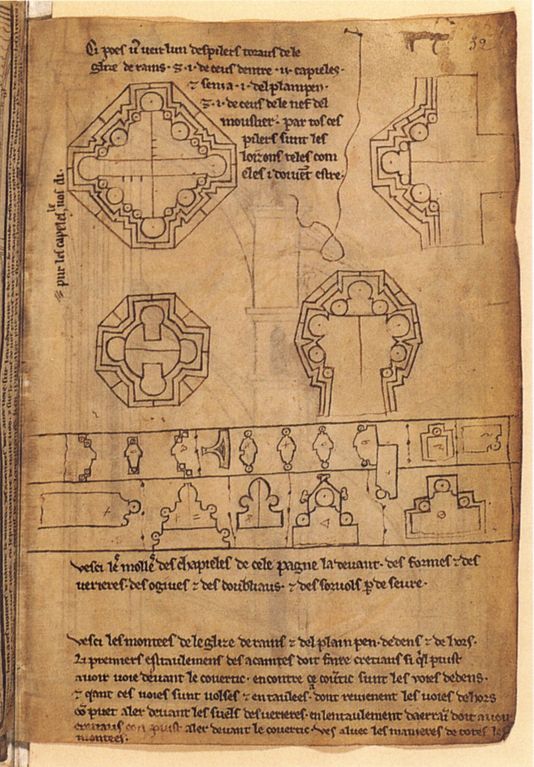 Ci poes ũ veir lun des pilers toraus de le
glize de rains · ⁊ · i · de ceus dentre · ii · capieles ·
⁊ sen i a · i · del plain pen ·
⁊ · i · de ceus de le nef del
moustier · par tos ces
pilers sunt les
loizons teles com
eles i doivẽt estre ·
32
Vesci les molles des chapieles de cele pagne la devant · des formes ⁊ des
verieres · des ogives ⁊ des doubliaus · ⁊ des sorvols p̱ de seure ·
Vesci les montees de le glize de rains ⁊ del plain pen · dedens ⁊ de hors ·
Li premiers estaulemens des acaintes doit faire cretiaus si q̃l puist
avoir voie devant le covertic · encontre ce covertic sunt les voies dedens ·
⁊ q̃nt ces voies sunt volses ⁊ entaulees · adont revienent les voies de hors
cõ puet aler devant les suels des verieres · en lentaulement daerrañ doit avoir
cretiaus con puist aler devant le covertic · ves aluec les manieres de totes les
montees ·